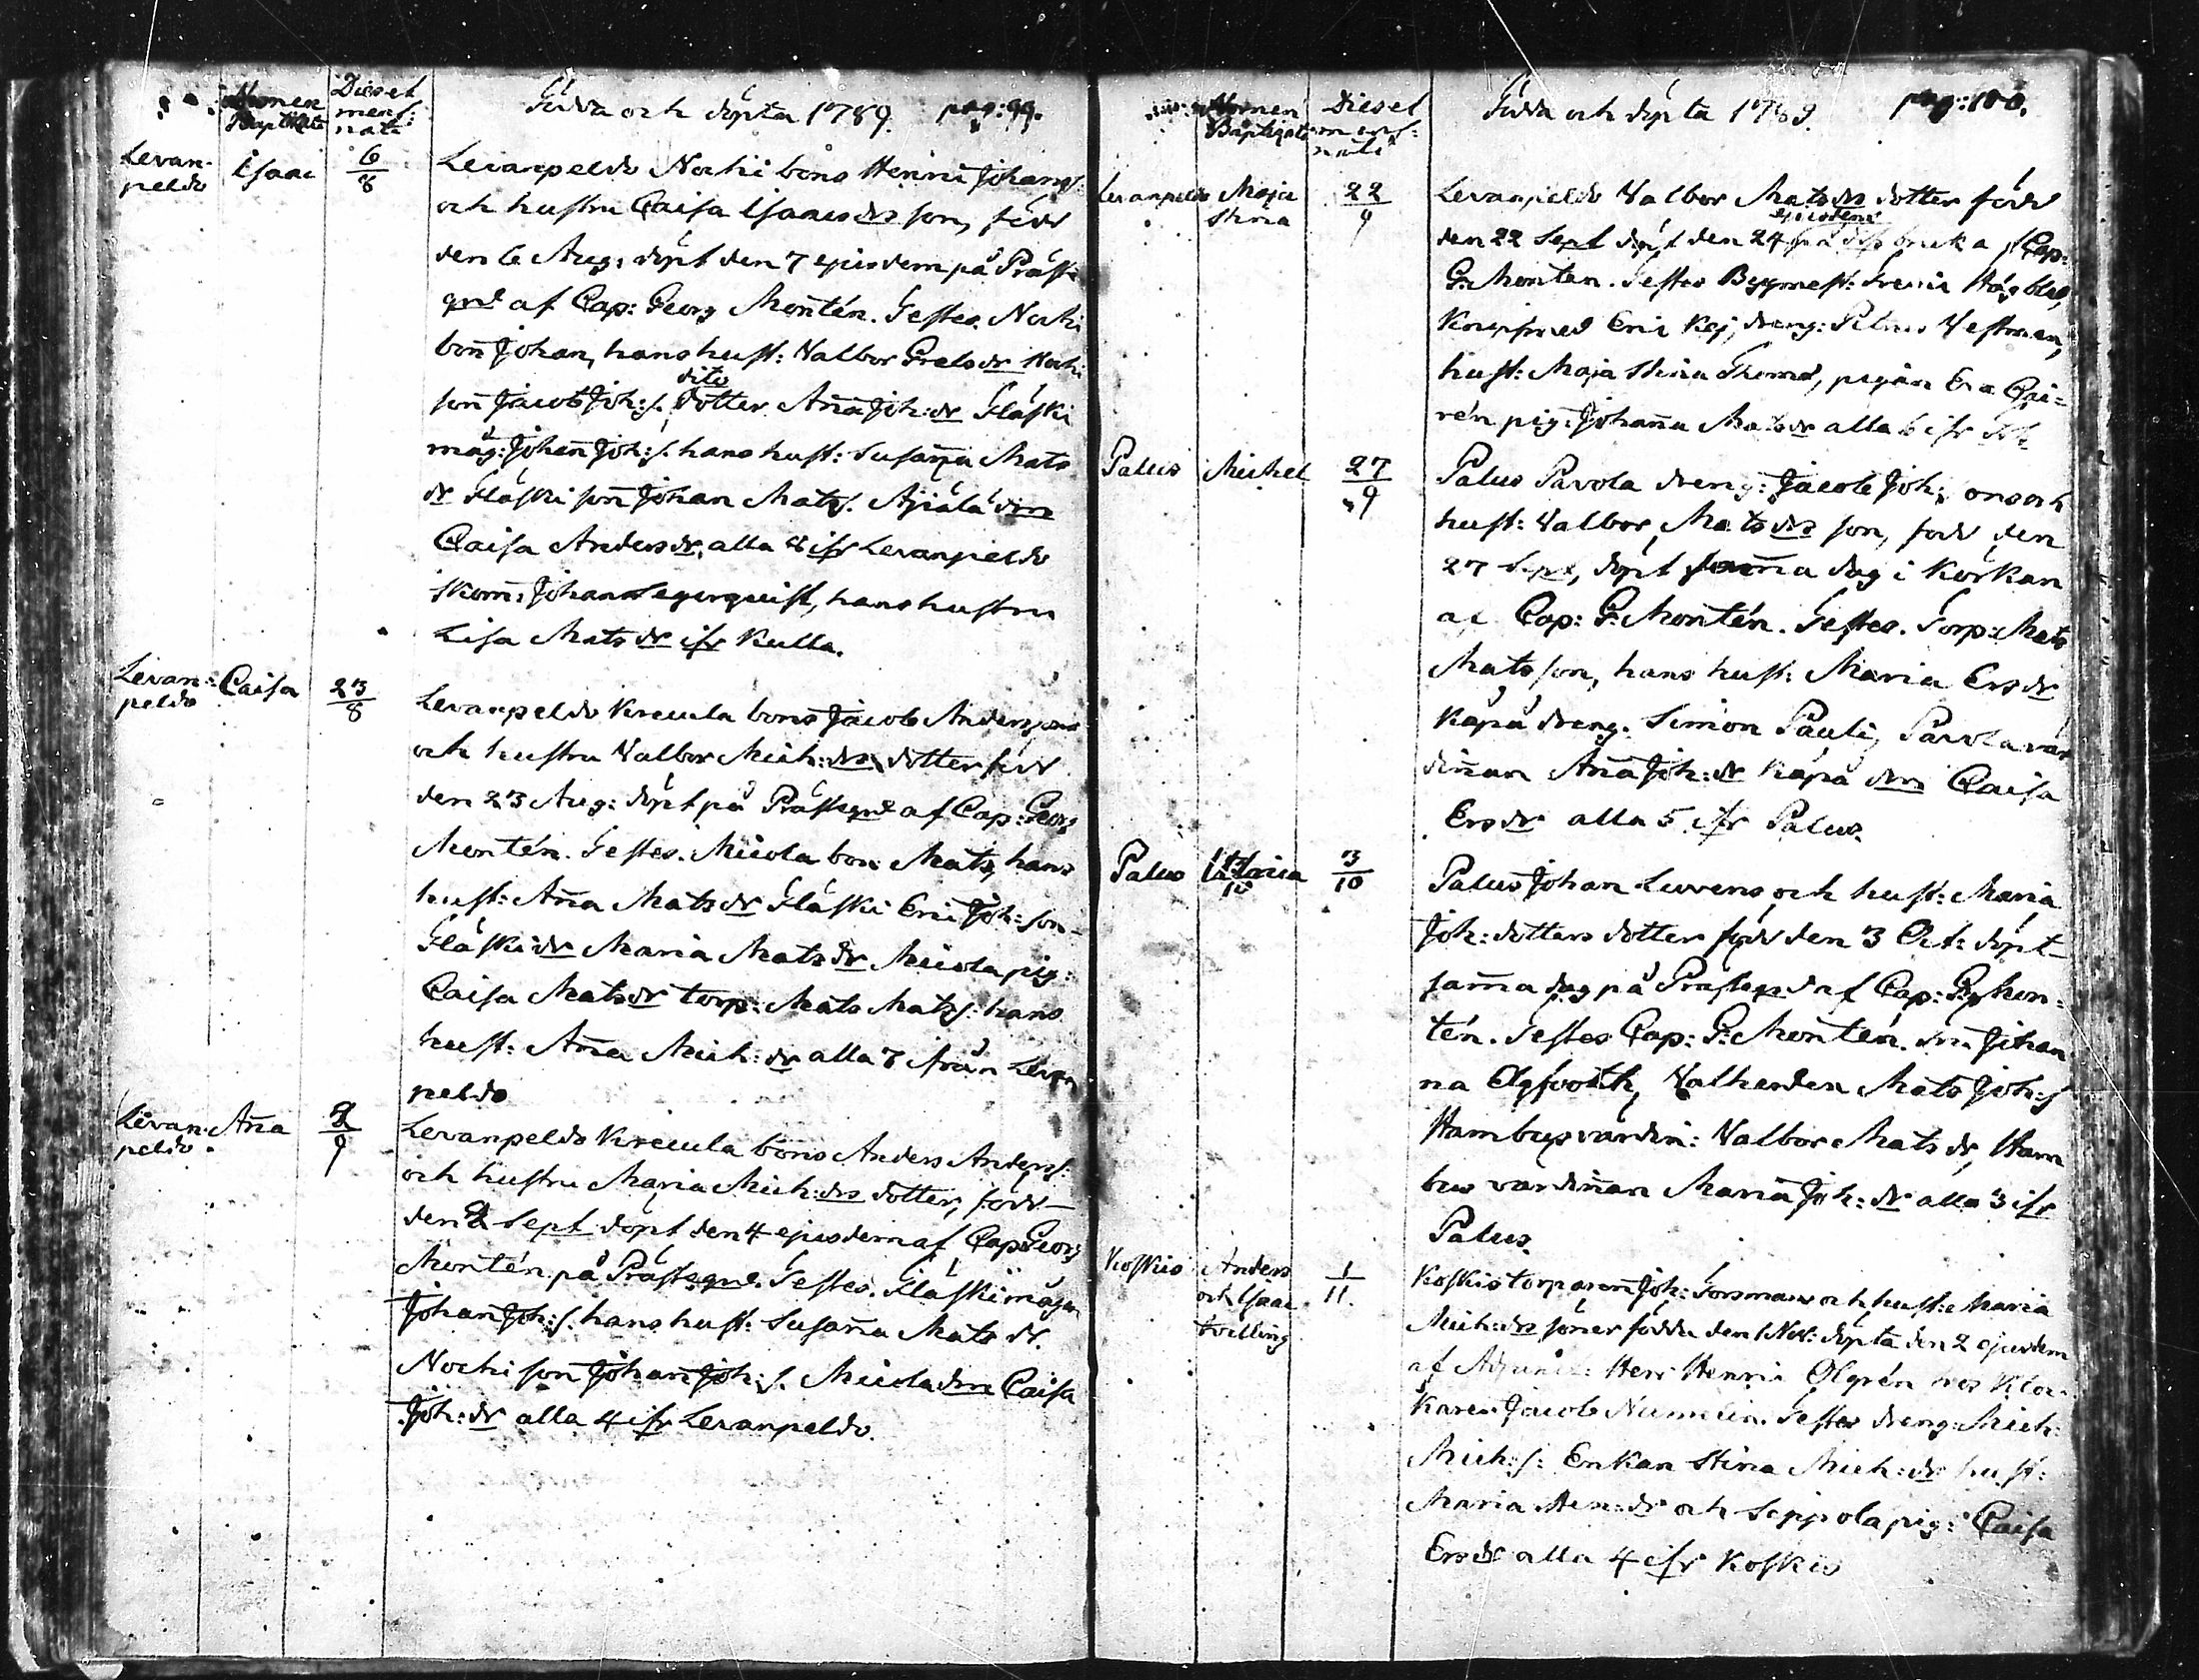 Nomen Baptizati
Dies et mens: nati
Födda och döpta 1789. pag: 99.
Levan-
peldo
Isaac
6/8
Levanpeldo Nochi bons Henric Johans:
och hustru Caisa Isaacs drs son, född
den 6 Aug: döpt den 7 ejusdem på Präst
grd af Cap: Georg Montén. Testes. Nochi
bon Johan, hans hust: Valbor Grels dr Nochi
dito
son Jacob Joh: s. dotter Aña Joh: dr Fläski
måg: Johan Joh: s. hans hust: Susaña Mats
dr Fläski son Johan Mats s. Äjälä drn
Caisa Anders dr, alla 8 ifr Levanpeldo
skom: Johan Segerquist, hans hustru
Lisa Mats dr ifr Kulla.
Levan-
peldo
Caisa
23/8
Levanpeldo Kreeula bons Jacob Anderssons
och hustru Valbor Mich: drs dotter född
den 23 Aug: döpt på Prästgrd af Cap: Georg
Montén. Testes. Micola bon Mats, hans
hust: Aña Mats dr Fläski Eric Joh: son
Fläski dr Maria Mats dr Micola pig:
Caisa Mats dr torp: Mats Mats s: hans
hust: Aña Mich: dr alla 7 från Levan
peldo
Levan-
peldo
Aña
2/9
Levanpeldo Kreeula bons Anders Anders s:
och hustru Maria Mich: drs dotter, född
den 2 Sept döpt den 4 ejusdem af Cap Georg
Montén på Prästegrd. Testes. Fläski mågen
Johan Joh: s. hans hust: Susaña Mats dr.
Nochi son Johan Joh: s. Micola drn Caisa
Joh: dr alla 4 ifr Levanpeldo.
Nomen Baptizati
Dies et mens: nati
Födda och döpta 1789. pag: 100.
Levanpeldo
Maja
Stina
22/9
Levanpeldo Valbor Mats drs dotter född
ejusdem
den 22 Sept döpt den 24 på bruka af Cap:
G: Montén. Testes Byggmest:
Knipsmed Eric Kej, dreng: Petrus Vestman,
hust: Maja Stina Thomé, pigan Eva Cai-
rén pig: Johaña Mats dr alla 6 ifr
Palus
Michel
27/9
Palus Pavola dreng: Jacob Joh: ons och
hust: Valbor, Mats drs son, född den
27 Sept, döpt saṁa dag i Körkan
af Cap: G: Montén. Testes. Torp: Mats
Matsson, hans hust: Maria Ers dr
Käpä dreng. Simon Pauli, Pavola vär
diñan Aña Joh: dr Käpä drn Caisa
Ers dr alla 5 ifr Palus.
Palus
Maria
3/10
Palus Johan Luvens och hust: Maria
Joh: dotters dotter född den 3 Oct: döpt
saṁa dag på Prästegrd af Cap: Gg Mon-
tén. Testes Cap: G: Montén. drn Johan
na Elgfooth, Valherden Mats Joh: s
Hambus värdin: Valbor Mats dr, Ham
bus värdiñan Maria Joh: dr alla 3 ifr
Palus.
Koskis
Anders
och Isaac
tvilling
1/11.
Koskis torparen Joh: Forsman och hust: Maria
Mich: drs söner födda den 1 Nov: döpta den 2 ejusdem
af Adjunct: Herr Henric Elgrén hos Kloc-
karen Jacob Numelin. Testes dreng: Mich:
Mich: s: Enkan Stina Mich: dr hust:
Maria Hen: dr och Seppola pig: Caisa
Ers dr alla 4 ifr Koskis